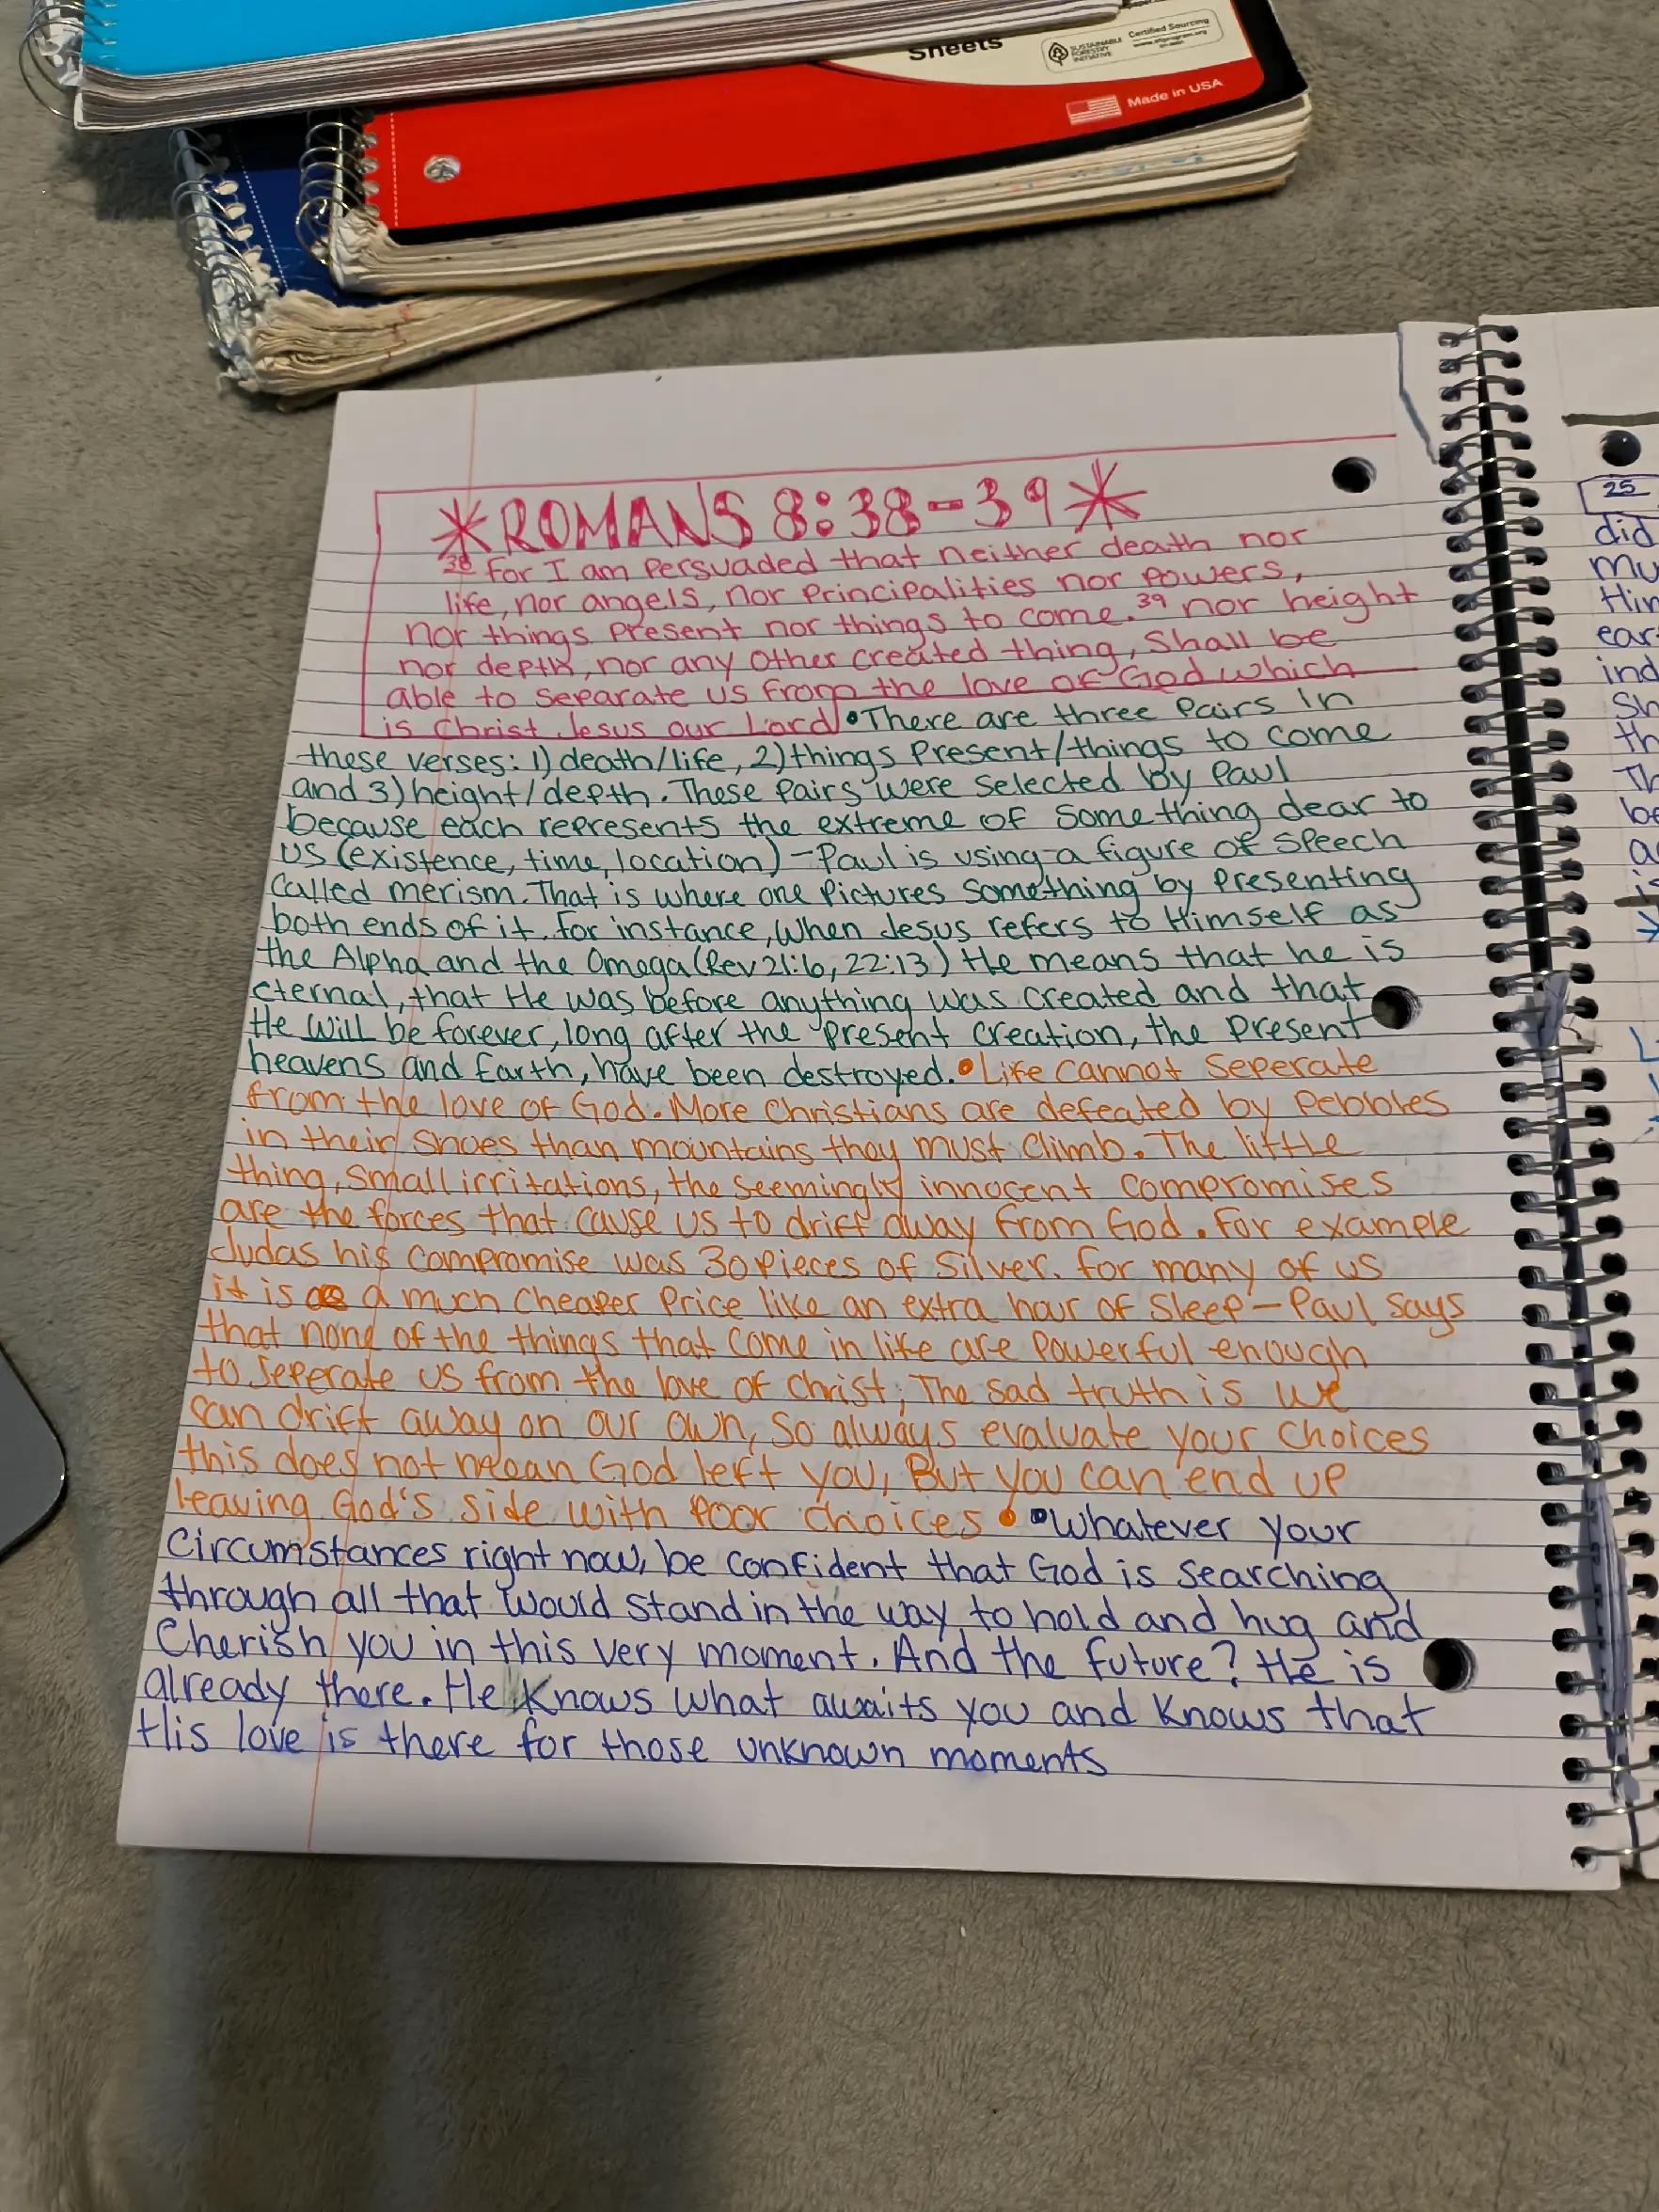 Sheets
SUSTAINABLE
FORESTRY
INITIATIVE
Certified Sourcing
Made in USA
*ROMANS 8:38-39*
38 For I am persuaded that neither death nor
life, nor angels, nor principalities nor powers,
nor things present nor things to come. 39 nor height
nor depth, nor any other created thing, shall be
able to separate us from the love of God which
is Christ Jesus our Lord •There are three pairs in
these verses: 1) death/life, 2) things present/things to come
and 3) height/depth. These pairs were selected by Paul
because each represents the extreme of something dear to
us (existence, time, location) - Paul is using a figure of speech
called merism. That is where one pictures something by presenting
both ends of it. For instance, when Jesus refers to Himself as
the Alpha and the Omega (Rev 21:6, 22:13) He means that he is
eternal, that He was before anything was created and that
He will be forever, long after the present creation, the present
heavens and Earth, have been destroyed. •Life cannot seperate
from the love of God. More Christians are defeated by pebbles
in their shoes than mountains they must climb. The little
thing, small irritations, the seemingly innocent compromises
are the forces that cause us to drift away from God. For example
Judas his compromise was 30 pieces of silver. For many of us
it is a much cheaper price like an extra hour of sleep - Paul says
that none of the things that come in life are powerful enough
to seperate us from the love of Christ; The sad truth is we
can drift away on our own, so always evaluate your choices
this does not mean God left you, But you can end up
leaving God's side with poor choices • •Whatever your
circumstances right now, be confident that God is searching
through all that would stand in the way to hold and hug and
Cherish you in this very moment. And the future? He is
already there. He knows what awaits you and knows that
His love is there for those unknown moments
25
did
mu
Him
ear
ind
Sh
th
Th
be
a
is